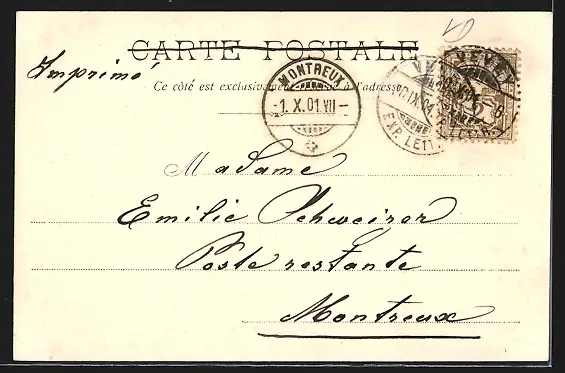 CARTE POSTALE
Imprimé
Ce côté est exclusivement à l'adresse
MONTREUX
-1.X.01.VII-
VEVEY
EXP. LETT.
VEVEY
Madame
Emilie Schweizer
Poste restante
Montreux